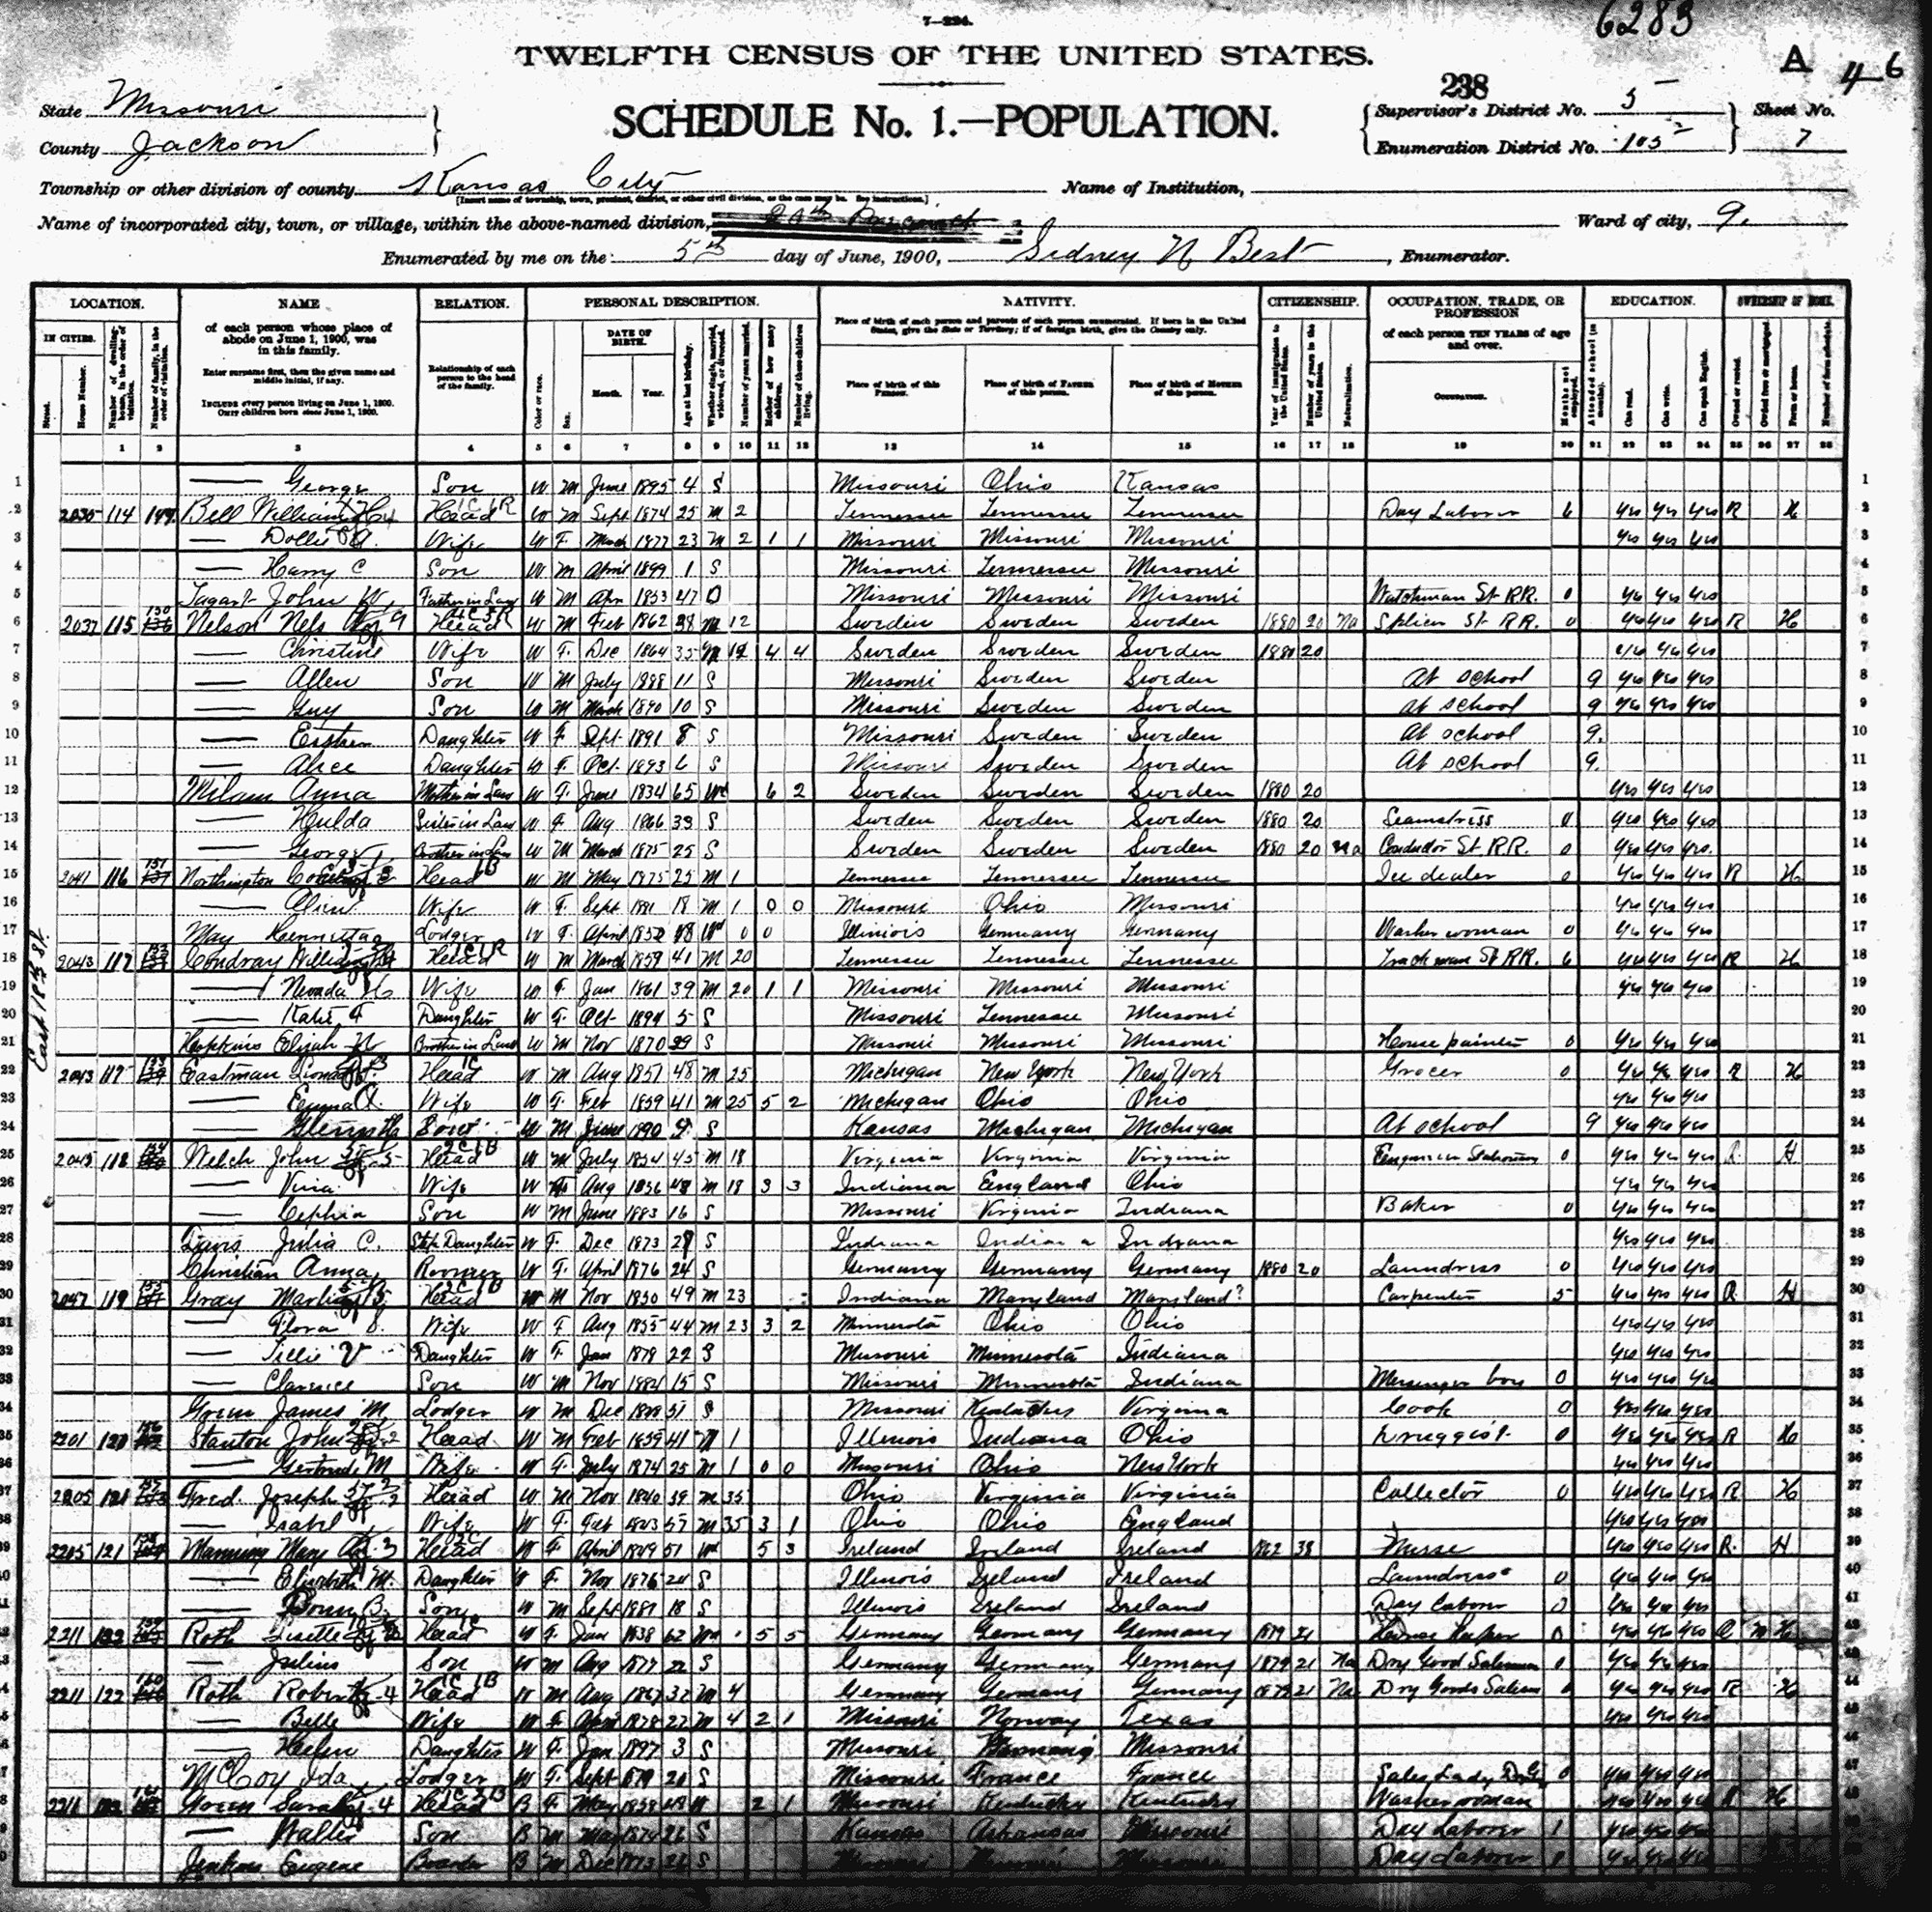 7—224.
6283
TWELFTH CENSUS OF THE UNITED STATES.
A 46
238
State Missouri
SCHEDULE No. 1.—POPULATION.
Supervisor's District No. 5
Sheet No.
County Jackson
Enumeration District No. 105
7
Township or other division of county Kansas City
Name of Institution,
[Insert name of township, town, precinct, district, or other civil division, as the case may be. See instructions.]
Name of incorporated city, town, or village, within the above-named division,
Ward of city, 9.
Enumerated by me on the 5th day of June, 1900, Sidney N Best, Enumerator.
LOCATION. NAME RELATION. PERSONAL DESCRIPTION. NATIVITY. CITIZENSHIP. OCCUPATION, TRADE, OR PROFESSION EDUCATION. OWNERSHIP OF HOME.
IN CITIES. Street. House Number. Number of dwelling-house, in the order of visitation. Number of family, in the order of visitation.
of each person whose place of abode on June 1, 1900, was in this family.
Enter surname first, then the given name and middle initial, if any.
INCLUDE every person living on June 1, 1900. OMIT children born since June 1, 1900.
Relationship of each person to the head of the family.
Color or race. Sex. DATE OF BIRTH. Month. Year. Age at last birthday. Whether single, married, widowed, or divorced. Number of years married. Mother of how many children. Number of these children living.
Place of birth of each person and parents of each person enumerated. If born in the United States, give the State or Territory; if of foreign birth, give the Country only.
Place of birth of this PERSON. Place of birth of FATHER of this person. Place of birth of MOTHER of this person.
Year of immigration to the United States. Number of years in the United States. Naturalization.
of each person TEN YEARS of age and over.
OCCUPATION. Months not employed.
Attended school (in months). Can read. Can write. Can speak English.
Owned or rented. Owned free or mortgaged. Farm or house. Number of farm schedule.
1 2 3 4 5 6 7 8 9 10 11 12 13 14 15 16 17 18 19 20 21 22 23 24 25 26 27 28
East 18th St.
1 — George Son W M June 1895 4 S Missouri Ohio Kansas 1
2 2035 114 149 Bell William Head W M Sept 1874 25 M 2 Tennessee Tennessee Tennessee Day Laborer 6 yes yes yes R H 2
3 — Dollie A. Wife W F March 1877 23 M 2 1 1 Missouri Missouri Missouri yes yes yes 3
4 — Harry C Son W M April 1899 1 S Missouri Tennessee Missouri 4
5 Tagart John W. Father in Law W M Apr 1853 47 D Missouri Missouri Missouri Watchman St RR. 0 yes yes yes 5
6 2037 115 150 Nelson Nels Head W M Feb 1862 38 M 12 Sweden Sweden Sweden 1880 20 Na Splicer St RR. 0 yes yes yes R H 6
7 — Christine Wife W F Dec 1864 35 M 12 4 4 Sweden Sweden Sweden 1880 20 yes yes yes 7
8 — Allen Son W M July 1888 11 S Missouri Sweden Sweden At school 9 yes yes yes 8
9 — Guy Son W M March 1890 10 S Missouri Sweden Sweden at school 9 yes yes yes 9
10 — Daughter W F Sept 1891 8 S Missouri Sweden Sweden At school 9. 10
11 — Alice Daughter W F. Oct. 1893 6 S Missouri Sweden Sweden At school 9. 11
12 Milam Anna Mother in Law W F. June 1834 65 Wd 6 2 Sweden Sweden Sweden 1880 20 yes yes yes 12
13 — Hulda Sister in Law W F Aug 1866 33 S Sweden Sweden Sweden 1880 20 Seamstress 0 yes yes yes 13
14 — George Brother in Law W M March 1875 25 S Sweden Sweden Sweden 1880 20 Na Conductor St RR. 0 yes yes yes. 14
15 2041 116 151 Northington Head W M May 1875 25 M 1 Tennessee Tennessee Tennessee Ice dealer 0 yes yes yes R H 15
16 — Wife W F. Sept 1881 18 M 1 0 0 Missouri Ohio Missouri yes yes yes 16
17 May Henrietta Lodger W F. April 1852 48 Wd 0 0 Illinois Germany Germany Washer woman 0 yes yes yes 17
18 2043 117 152 Condray William Head W M March 1859 41 M 20 Tennessee Tennessee Tennessee Trackman St RR. 6 yes yes yes R H 18
19 — Nevada Wife W F. Jan 1861 39 M 20 1 1 Missouri Missouri Missouri yes yes yes 19
20 — Katie F Daughter W F. Oct 1894 5 S Missouri Tennessee Missouri 20
21 Hopkins Elijah N Brother in Law W M Nov 1870 29 S Missouri Missouri Missouri House painter 0 yes yes yes 21
22 2043 117 153 Eastman Head W M Aug 1851 48 M 25 Michigan New York New York Grocer 0 yes yes yes R H 22
23 — Emma A. Wife W F. Feb 1859 41 M 25 5 2 Michigan Ohio Ohio yes yes yes 23
24 — Son W M June 1890 9 S Kansas Michigan Michigan At school 9 yes yes yes 24
25 2045 118 154 Welch John Head W M July 1854 45 M 18 Virginia Virginia Virginia 0 yes yes yes R. H 25
26 — Wife W F Aug 1856 43 M 18 3 3 Indiana England Ohio yes yes yes 26
27 — Cephia Son W M June 1883 16 S Missouri Virginia Indiana Baker 0 yes yes yes 27
28 Julia C. Step Daughter W F. Dec 1873 S Indiana Indiana Indiana yes yes yes 28
29 Christian Anna Roomer W F. April 1876 24 S Germany Germany Germany 1880 20 Laundress 0 yes yes yes 29
30 2047 119 155 Gray Head W M Nov 1850 49 M 23 Indiana Maryland Maryland? Carpenter 5 yes yes yes R H 30
31 — Flora Wife W F Aug 1855 44 M 23 3 2 Minnesota Ohio Ohio yes yes yes 31
32 — Tillie V Daughter W F. Jan 1878 22 S Missouri Minnesota Indiana yes yes yes 32
33 — Clarence Son W M Nov 1884 15 S Missouri Minnesota Indiana Messenger boy 0 yes yes yes 33
34 James M Lodger W M Dec 51 S Missouri Kentucky Virginia Cook 0 yes yes yes 34
35 2201 120 156 Stanton John Head W M Feb 1859 41 M 1 Illinois Indiana Ohio Druggist 0 yes yes yes R H 35
36 — Gertrude M Wife W F. July 1874 25 M 1 0 0 Missouri Ohio New York yes yes yes 36
37 2205 121 157 Fred. Joseph Head W M Nov 1840 59 M 35 Ohio Virginia Virginia Collector 0 yes yes yes R H 37
38 — Isabel Wife W F. Feb 1843 57 M 35 3 1 Ohio Ohio England yes yes yes 38
39 2205 121 158 Manning Mary Head W F April 1849 51 Wd 5 3 Ireland Ireland Ireland 1862 38 Nurse yes yes yes R. H 39
40 — Elizabeth M. Daughter W F. Nov 1876 S Illinois Ireland Ireland Laundress 0 yes yes yes 40
41 — Son W M Sept 1881 18 S Illinois Ireland Ireland Day Laborer 0 yes yes yes 41
42 2211 122 159 Roth Lisette Head W F. June 1838 62 Wd 5 5 Germany Germany Germany 1879 21 House Keeper 0 yes yes yes O M H 42
43 — Julius Son W M Aug 1877 22 S Germany Germany Germany 1879 21 Na Dry Good Salesman 0 yes yes yes 43
44 2211 122 160 Roth Robert Head W M Aug 1867 32 M 4 Germany Germany Germany 1879 21 Na Dry Goods Salesm yes yes yes R H 44
45 — Belle Wife W F April 1878 22 M 4 2 1 Missouri Norway Texas yes yes yes 45
46 — Helen Daughter W F Jan 1897 3 S Missouri Germany Missouri 46
47 McCoy Ida Lodger W F. Sept 1879 20 S Missouri France France Sales Lady 0 yes yes yes 47
48 161 Head B F May Missouri Kentucky Kentucky Washerwoman yes yes yes R H 48
49 — Walter Son B M May 1874 26 S Kansas Arkansas Missouri Day Laborer yes yes yes 49
50 Jenkins Eugene Boarder B M Dec 1873 26 S Missouri Missouri Missouri Day Laborer yes yes yes